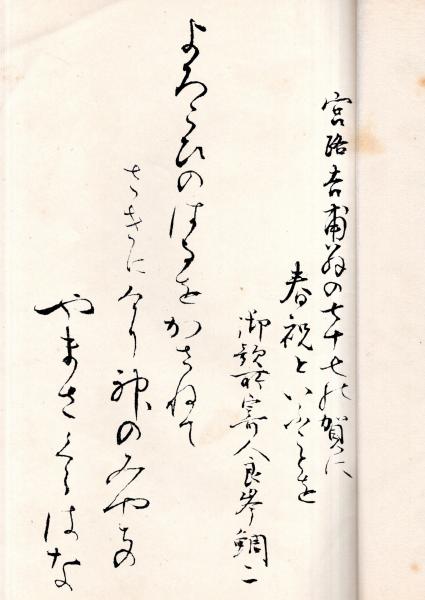 宮路吉甫翁の七十七の賀に
春祝といふことを
御歌所寄人良岑鯛二
よろこひのはるをかさねて
さきにけり神のみやまの
やまさくらはな